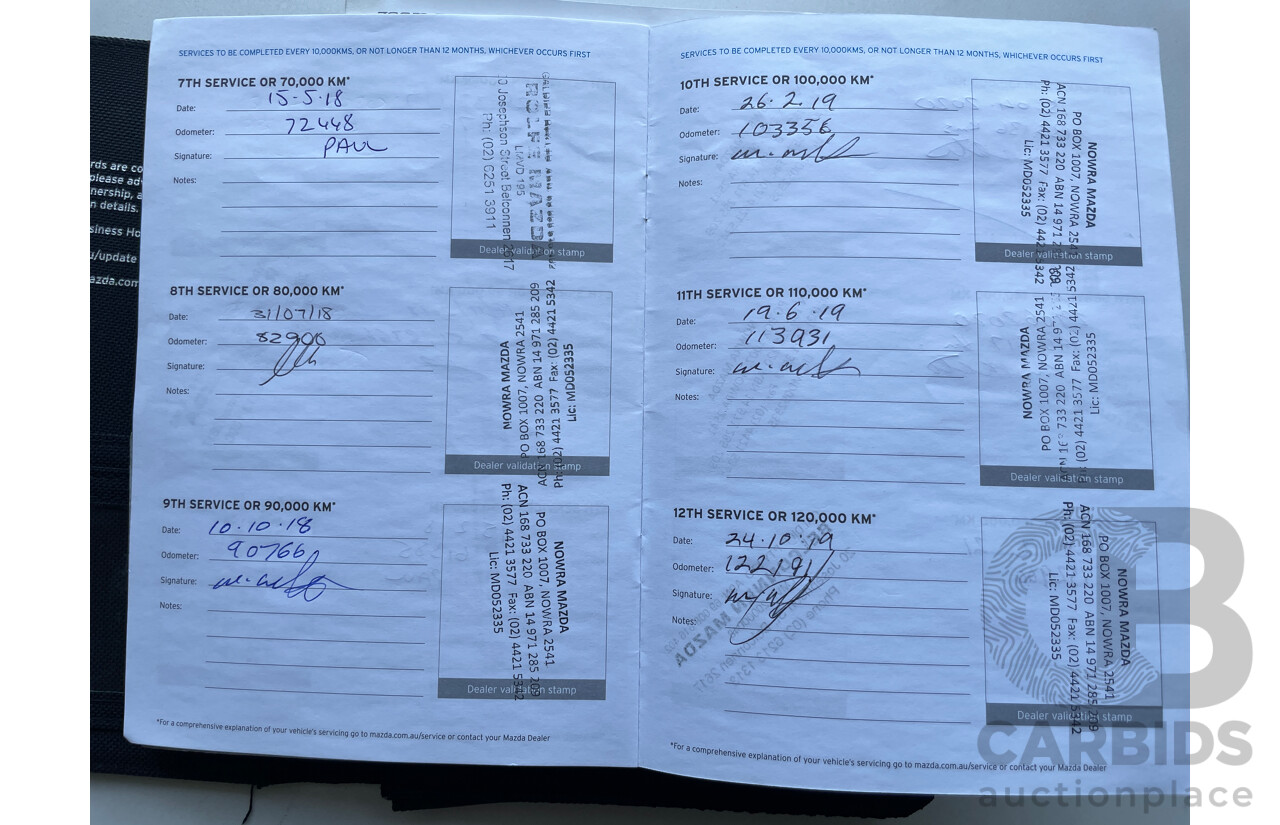 rds are co
please ad
nership, a
n details.
siness Ho
u/update
azda.com
SERVICES TO BE COMPLETED EVERY 10,000KMS, OR NOT LONGER THAN 12 MONTHS, WHICHEVER OCCURS FIRST
7TH SERVICE OR 70,000 KM*
Date: 15-5-18
Odometer: 72448
Signature: PAUL
Notes:
ROLFE MAZDA
LMVD 195
Josephson Street Belconnen
Ph: (02) 6251 3911
Dealer validation stamp
8TH SERVICE OR 80,000 KM*
Date: 31/07/18
Odometer: 82900
Signature:
Notes:
NOWRA MAZDA
PO BOX 1007, NOWRA 2541
ACN 168 733 220 ABN 14 971 285 209
Ph: (02) 4421 3577 Fax: (02) 4421 5342
Lic: MD052335
Dealer validation stamp
9TH SERVICE OR 90,000 KM*
Date: 10.10.18
Odometer: 90766
Signature:
Notes:
NOWRA MAZDA
PO BOX 1007, NOWRA 2541
ACN 168 733 220 ABN 14 971 285 209
Ph: (02) 4421 3577 Fax: (02) 4421 5342
Lic: MD052335
Dealer validation stamp
*For a comprehensive explanation of your vehicle's servicing go to mazda.com.au/service or contact your Mazda Dealer
SERVICES TO BE COMPLETED EVERY 10,000KMS, OR NOT LONGER THAN 12 MONTHS, WHICHEVER OCCURS FIRST
10TH SERVICE OR 100,000 KM*
Date: 26.2.19
Odometer: 103356
Signature:
Notes:
NOWRA MAZDA
PO BOX 1007, NOWRA 2541
ACN 168 733 220 ABN 14 971 2
Ph: (02) 4421 3577 Fax: (02) 4421 5342
Lic: MD052335
Dealer validation stamp
11TH SERVICE OR 110,000 KM*
Date: 19.6.19
Odometer: 113931
Signature:
Notes:
NOWRA MAZDA
PO BOX 1007, NOWRA 2541
ACN 168 733 220 ABN 14 97 209
Ph: (02) 4421 3577 Fax: (02) 4421 5342
Lic: MD052335
Dealer validation stamp
12TH SERVICE OR 120,000 KM*
Date: 24.10.19
Odometer: 122191
Signature:
Notes:
NOWRA MAZDA
PO BOX 1007, NOWRA 2541
ACN 168 733 220 ABN 14 971 285 209
Ph: (02) 4421 3577 Fax: (02) 4421 5342
Lic: MD052335
Dealer validation stamp
*For a comprehensive explanation of your vehicle's servicing go to mazda.com.au/service or contact your Mazda Dealer
CB
CARBIDS
auctionplace